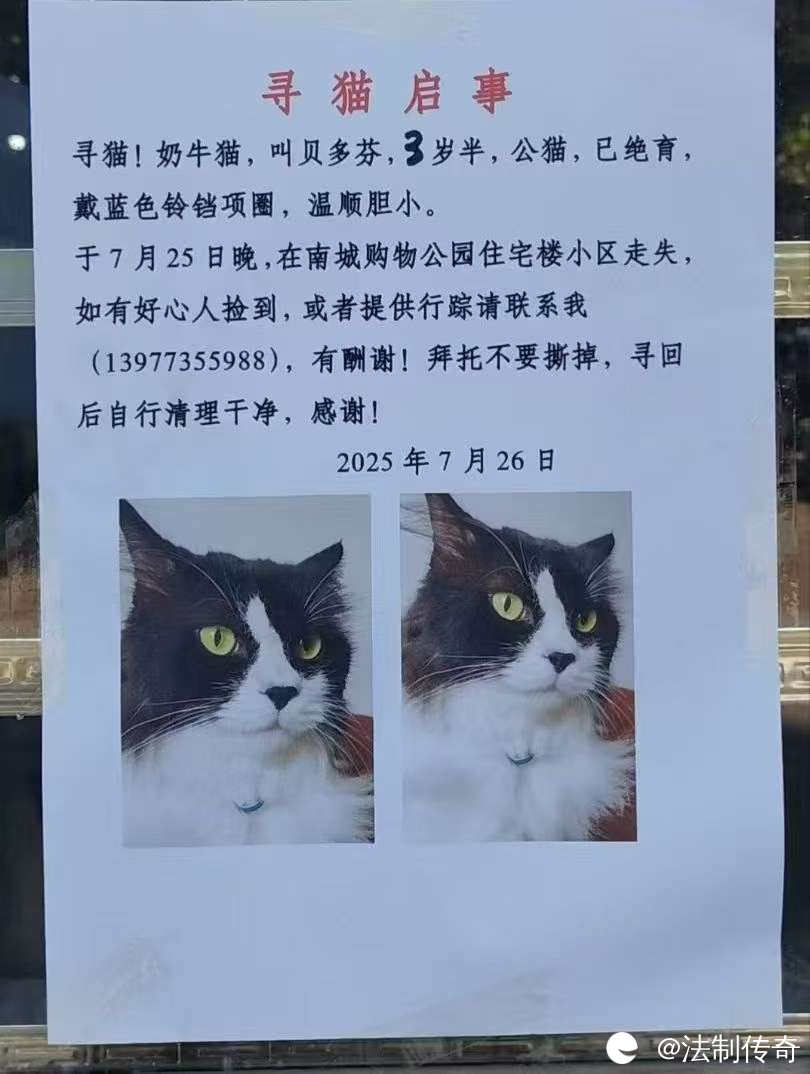 寻猫启事
寻猫！奶牛猫，叫贝多芬，3岁半，公猫，已绝育，
戴蓝色铃铛项圈，温顺胆小。
于7月25日晚，在南城购物公园住宅楼小区走失，
如有好心人捡到，或者提供行踪请联系我
（13977355988），有酬谢！拜托不要撕掉，寻回
后自行清理干净，感谢！
2025年7月26日
@法制传奇